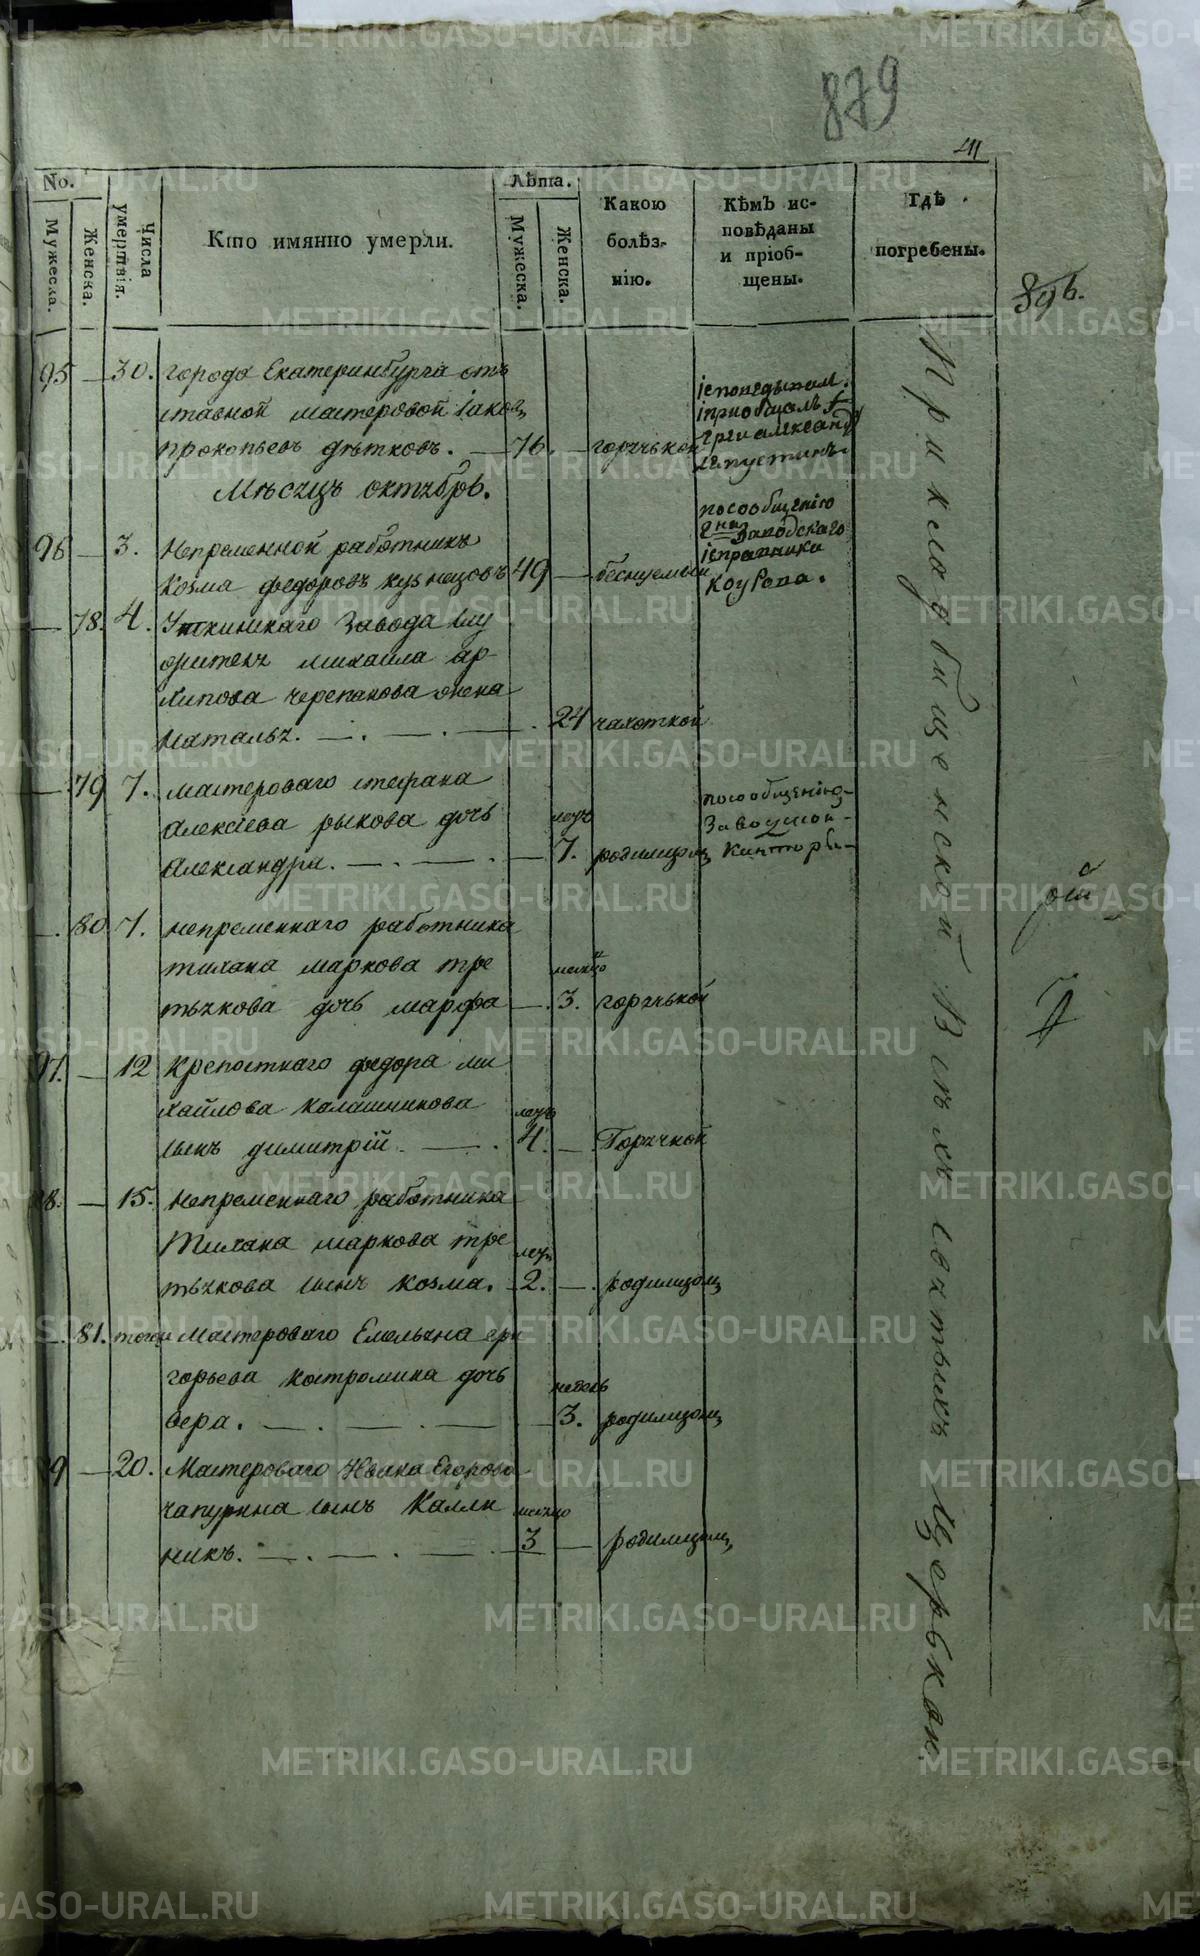 879
411
No.
Мужеска.
Женска.
Числа умертвія.
Кто имянно умерли.
Лѣта.
Мужеска.
Женска.
Какою болѣз-
нію.
Кѣмъ ис-
повѣданы
и пріоб-
щены.
Гдѣ
погребены.
95 — 30. города Екатеринбурга отъ
ставной мастеровой Іаковъ
прокопьевъ дѣтковъ. — 76. — горячькой
Мѣсяцъ октябрь.
96 — 3. Непременной работникъ
Козма федоровъ кузнецовъ 49 — беснуемый
по сообщенію
Заводскаго
исправника
— 78. 4. Уткинскаго Завода слу
жителя михаила ар
хипова черепанова жена
Наталья. — . — . — . 24 чахоткой
— 79 7. мастероваго стефана
Алексѣева рыкова дочь
Александра. — . — . — 7. родимцомъ
по сообщенію
Заводской
Канторы
— . 80 7. непременнаго работника
тихана маркова тре
тьякова дочь марфа — . 3. горячькой
97. — 12 Крепостнаго федора ми
хайлова калашникова
сынъ димитрій. — . 4. — . Горячкой
98. — 15. непременнаго работника
Тихана маркова тре
тьякова сынъ козма. — 2. — . родимцомъ
— . 81. тогож мастероваго Емельяна гри
горьева костромина дочь
недель
вера. — . — . — 3. родимцомъ
99 — 20. Мастероваго Ивана Егорова
чапурина сынъ Калли
никъ. — . — . — . 3 — родимцомъ
При кладбищенской Всѣхъ святыхъ Церькви.